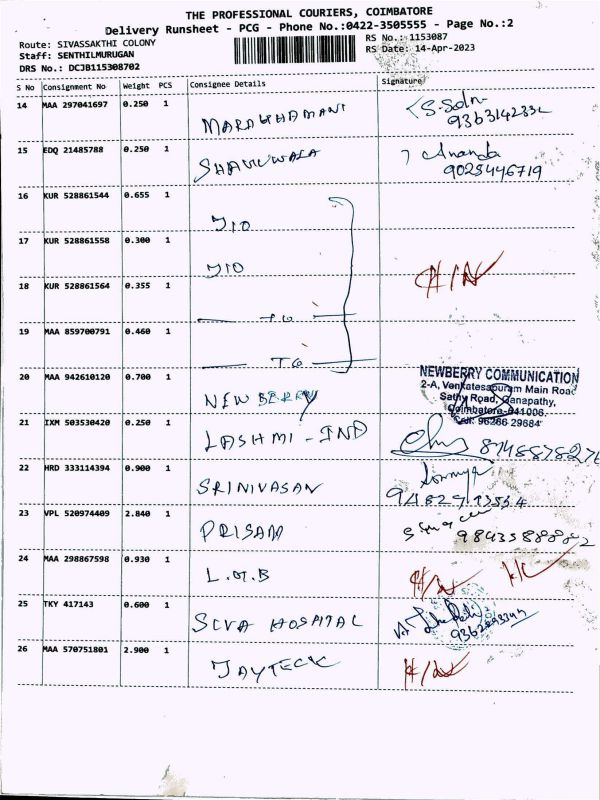 THE PROFESSIONAL COURIERS, COIMBATORE
Delivery Runsheet - PCG - Phone No.:0422-3505555 - Page No.:2
Route: SIVASSAKTHI COLONY
RS No.: 1153087
Staff: SENTHILMURUGAN
RS Date: 14-Apr-2023
DRS No.: DCJB115308702
S No Consignment No Weight PCS Consignee Details Signature
14 MAA 297041697 0.250 1
15 EDQ 21485788 0.250 1 Ananda
9025446719
16 KUR 528861544 0.655 1 JIO
17 KUR 528861558 0.300 1 JIO
18 KUR 528861564 0.355 1
19 MAA 859700791 0.460 1
20 MAA 942610120 0.700 1 NEW BERRY
NEWBERRY COMMUNICATION
2-A, Venkatesapuram Main Road
Sathy Road, Ganapathy,
Coimbatore-641006.
Cell: 96266 29684
21 IXM 503530420 0.250 1 LASHMI - IND
22 HRD 333114394 0.900 1 SRINIVASAN
23 VPL 520974409 2.840 1 PRISAM
24 MAA 298867598 0.930 1 L.M.B
25 TKY 417143 0.600 1 SIVA HOSPITAL
26 MAA 570751801 2.900 1 JAYTECK